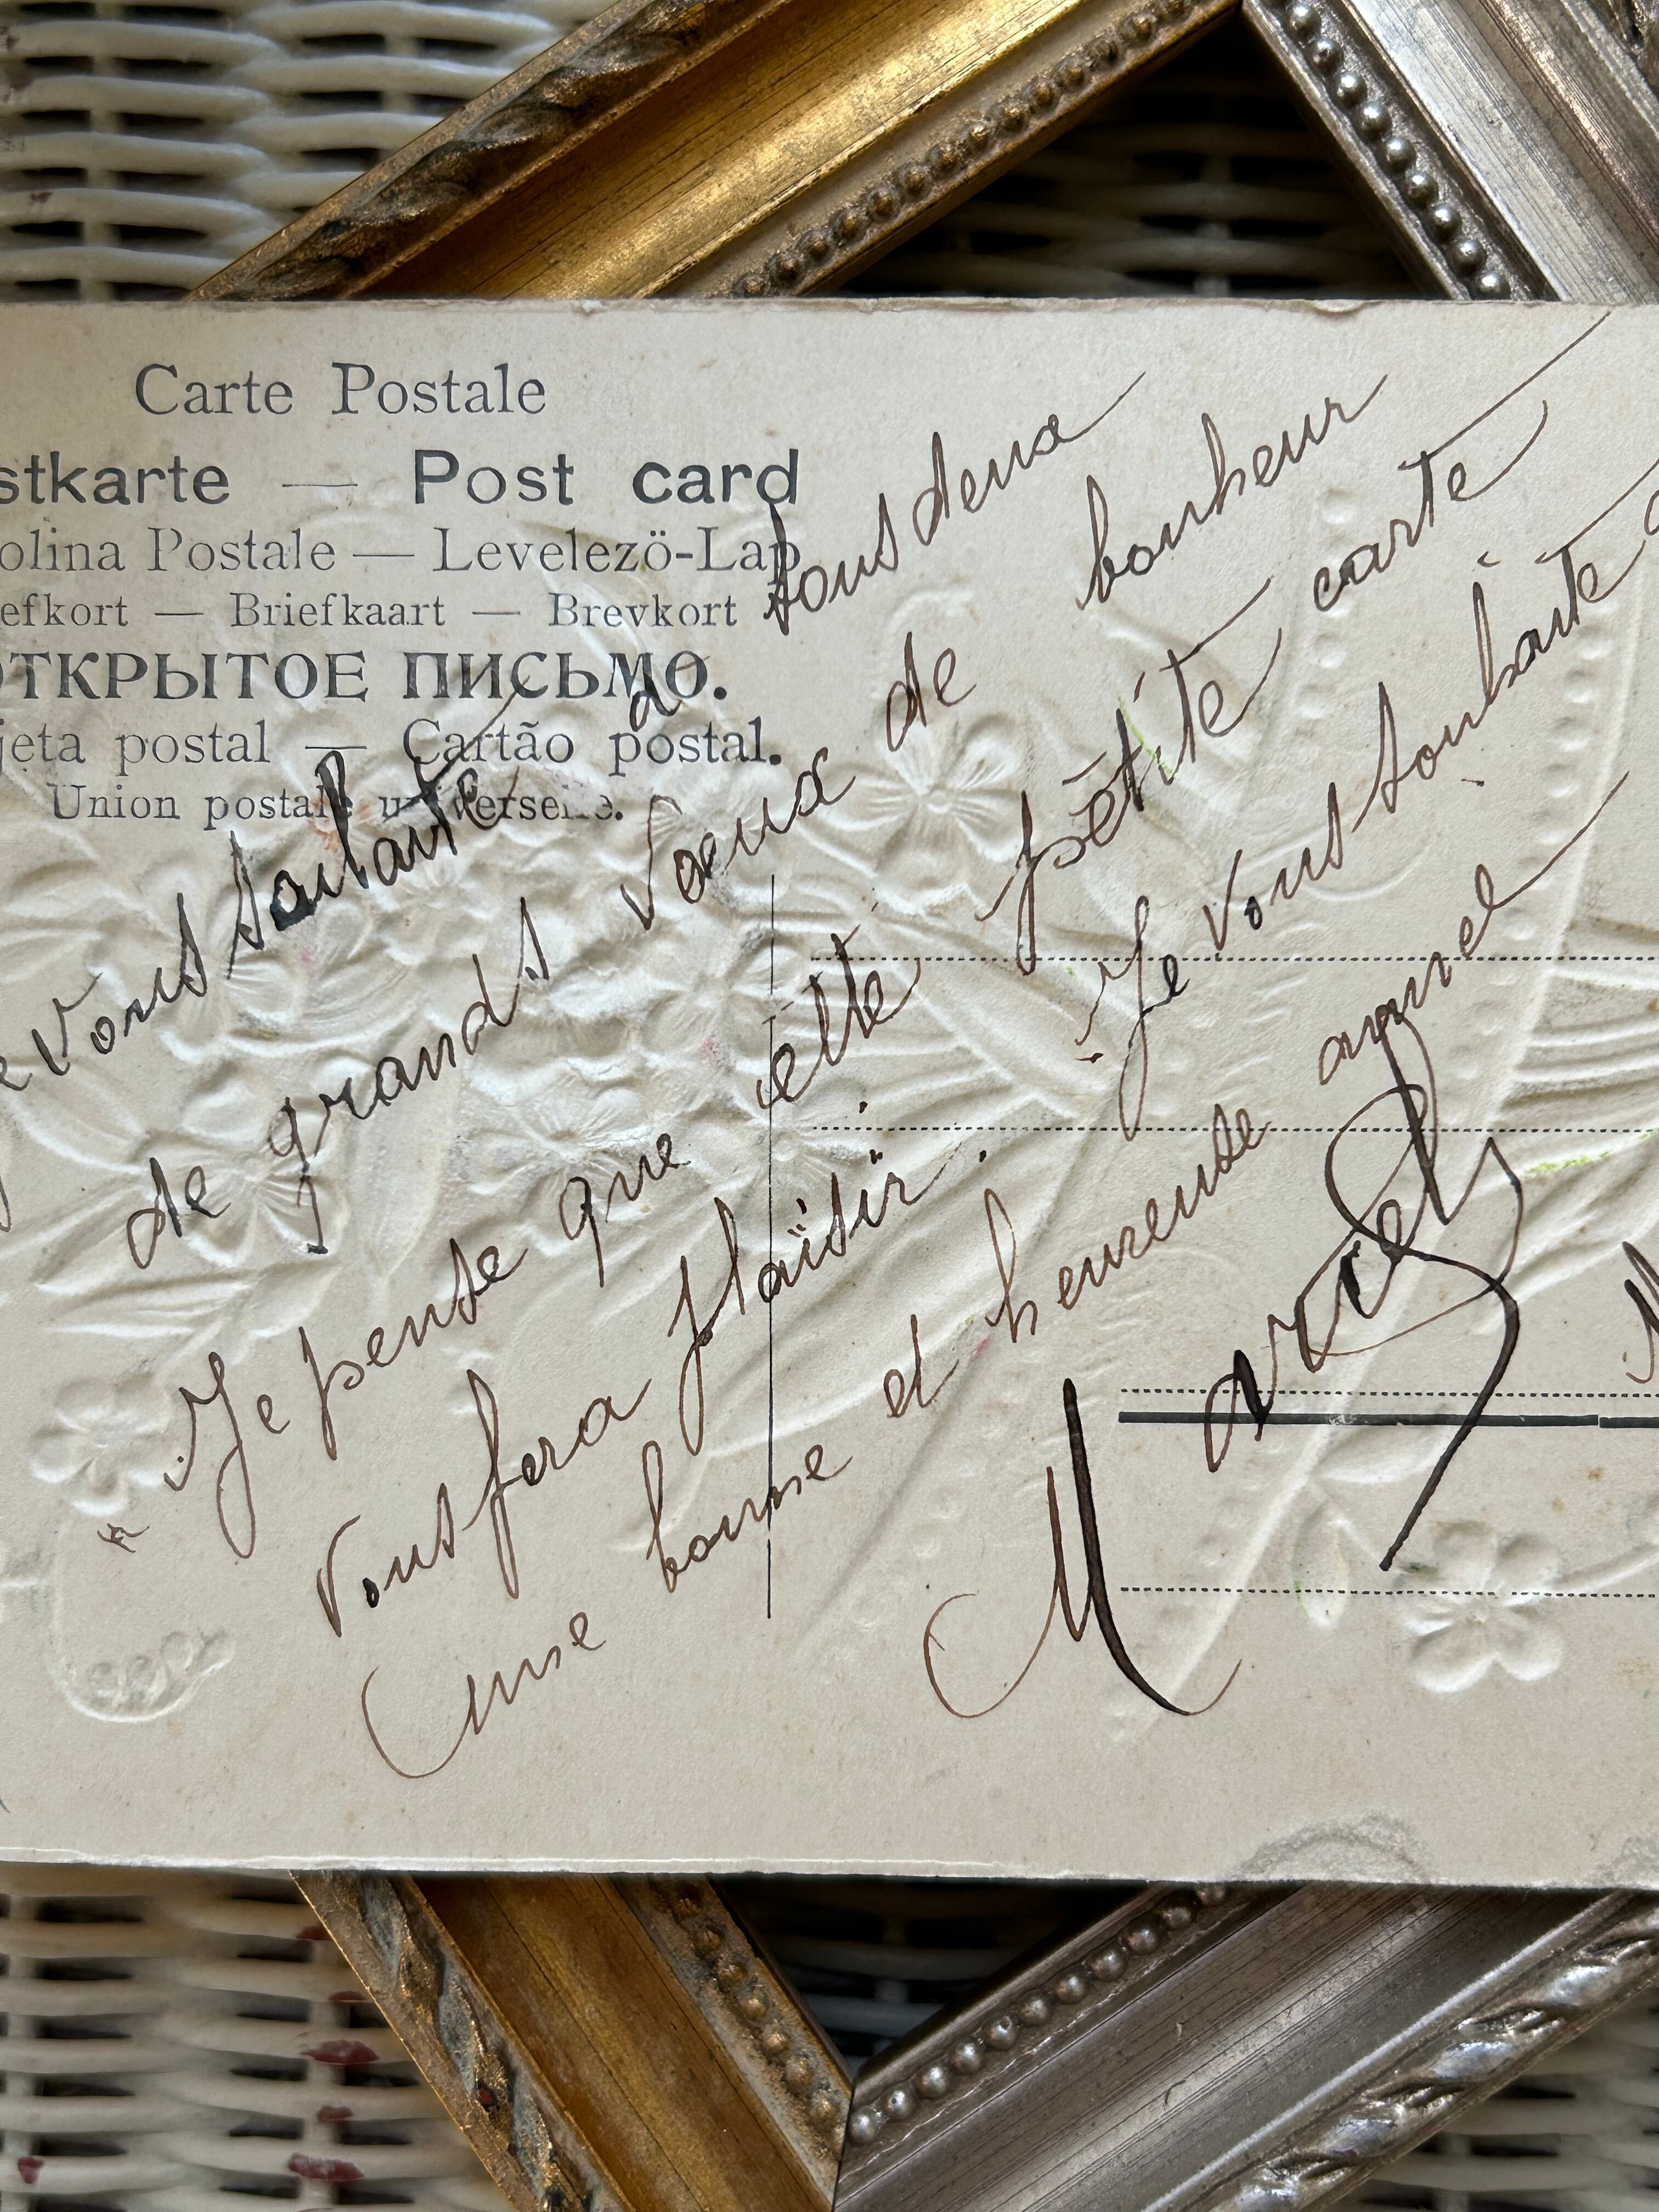 Carte Postale
stkarte — Post card
olina Postale — Levelezö-Lap
efkort — Briefkaart — Brevkort
ОТКРЫТОЕ ПИСЬМО.
jeta postal — Cartão postal.
Union postale universelle.
e vous souhaite à tous deux
de grands vœux de bonheur
"Je pense que cette pètite carte
vous fera plaïsir. Je vous souhaite
une bonne et heureuse annel
Marcel